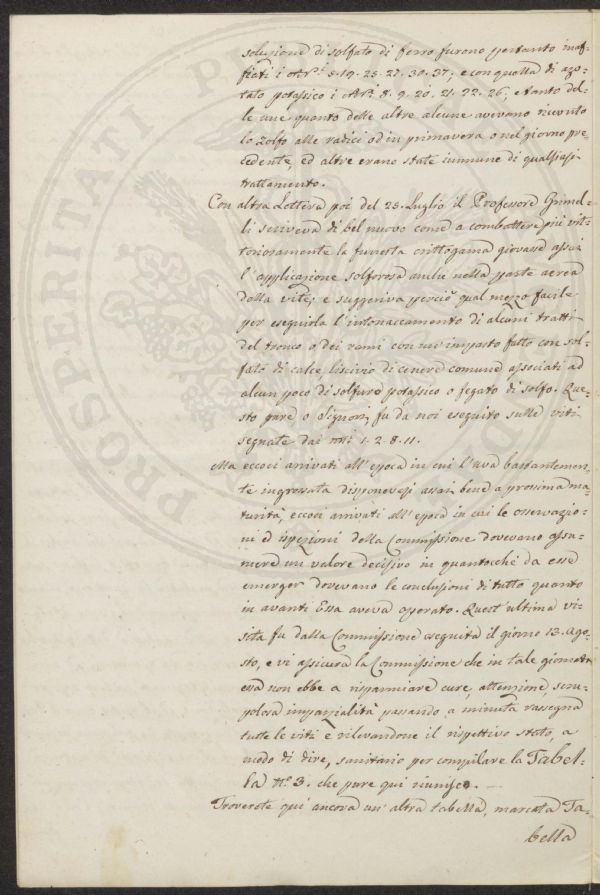 soluzione di solfato di ferro furono pertanto inaf-
fiati i Nri 5. 19. 25. 27. 30. 37; e con quella di azo-
tato potassico i Nri 8. 9. 20. 21. 22. 26; e tanto del-
le une quanto delle altre alcune avevano ricevuto
lo Zolfo alle radici od in primavera o nel giorno pre-
cedente, ed altre erano state immune di qualsiasi
trattamento.
Con altra Lettera poi del 25. Luglio il Professore Grimel-
li scriveva di bel nuovo come a combattere più vit-
toriosamente la funesta crittogama giovasse assai
l'applicazione solforosa anche nella parte aerea
della vite; e suggeriva perciò qual mezzo facile
per eseguirla l'intonacamento di alcuni tratti
del tronco o dei rami con un'impasto fatto con sol-
fato di calce, liscivio di cenere comune associati ad
alcun poco di solfuro potassico o fegato di solfo. Que-
sto pure o Signori, fu da noi eseguito sulle viti
segnate dai Nri 1. 2. 8. 11.
Ma eccoci arrivati all'epoca in cui l'uva bastantemen-
te ingrossata disponevasi assai bene a prossima ma-
turità, eccoci arrivati all'epoca in cui le osservazio-
ni ed ispezioni della Commissione dovevano assu-
mere un valore decisivo in quantocché da esse
emerger dovevano le conclusioni di tutto quanto
in avanti Essa aveva operato. Quest'ultima vi-
sita fu dalla Commissione eseguita il giorno 13. Ago-
sto, e vi assicura la Commissione che in tale giornata
essa non ebbe a risparmiare cure, attenzione, scru-
polosa imparzialità passando a minuta rassegna
tutte le viti e rilevandone il rispettivo stato, a
modo di dire, sanitario per compilare la Tabel-
la No. 3. che pure qui riunisco. —
Troverete qui ancora un'altra tabella, marcata Ta-
bella
PROSPERITATI